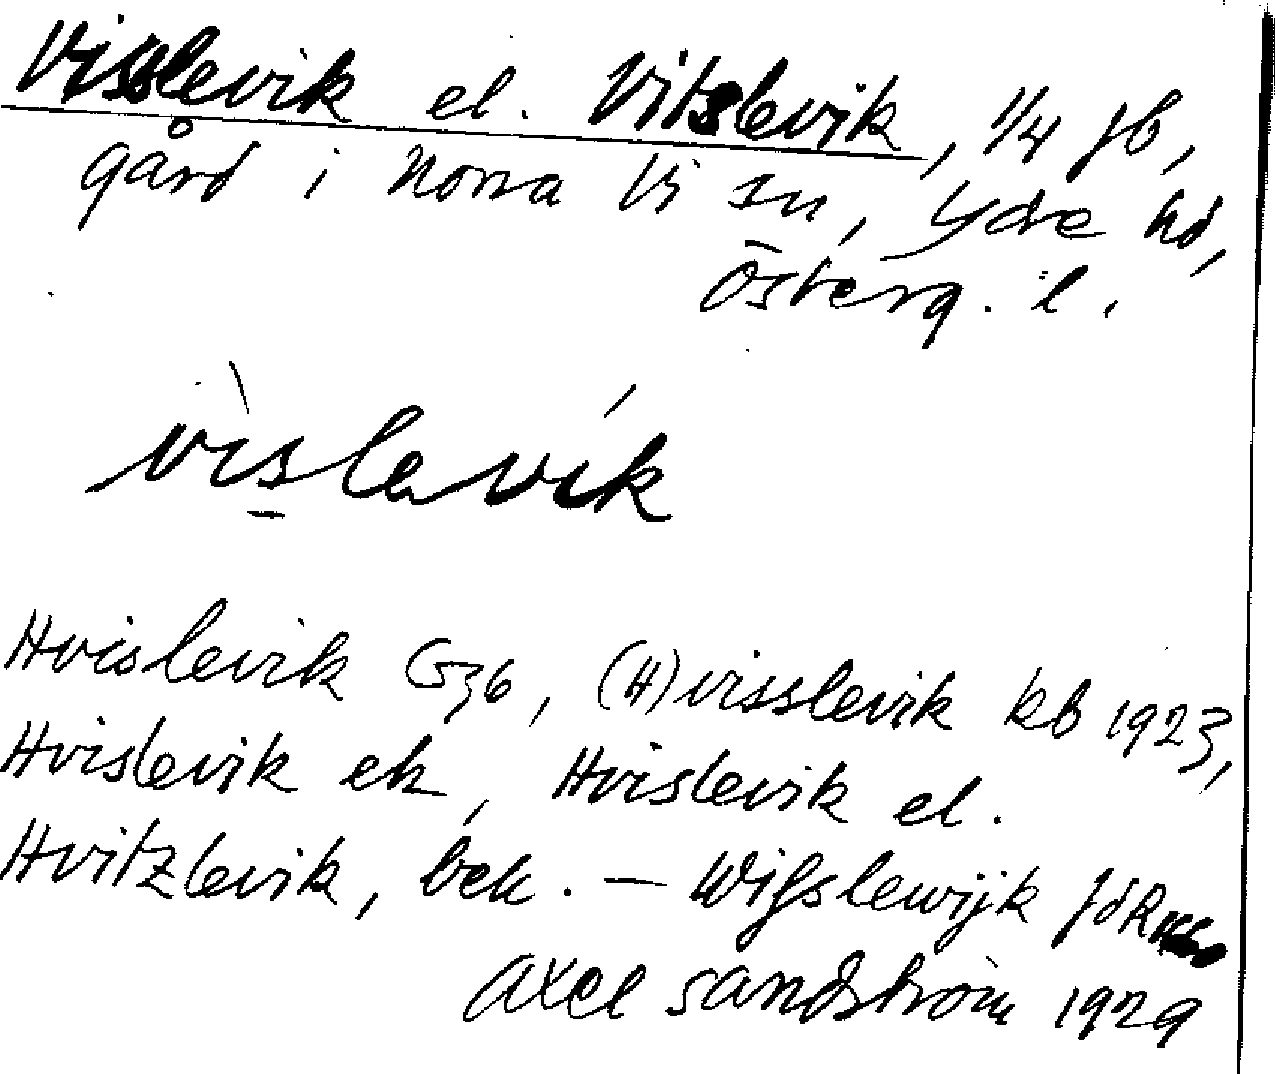 Visslevik el. Vitslevik, 1/4 jb,
gård i Norra Vi sn, Ydre hd,
Österg. l.
vislavik
Hvislevik G36, (H)visslevik kb 1923,
Hvislevik ek, Hvislevik el.
Hvitzlevik, bek. — Wifslewijk JdR
Axel Sandström 1929